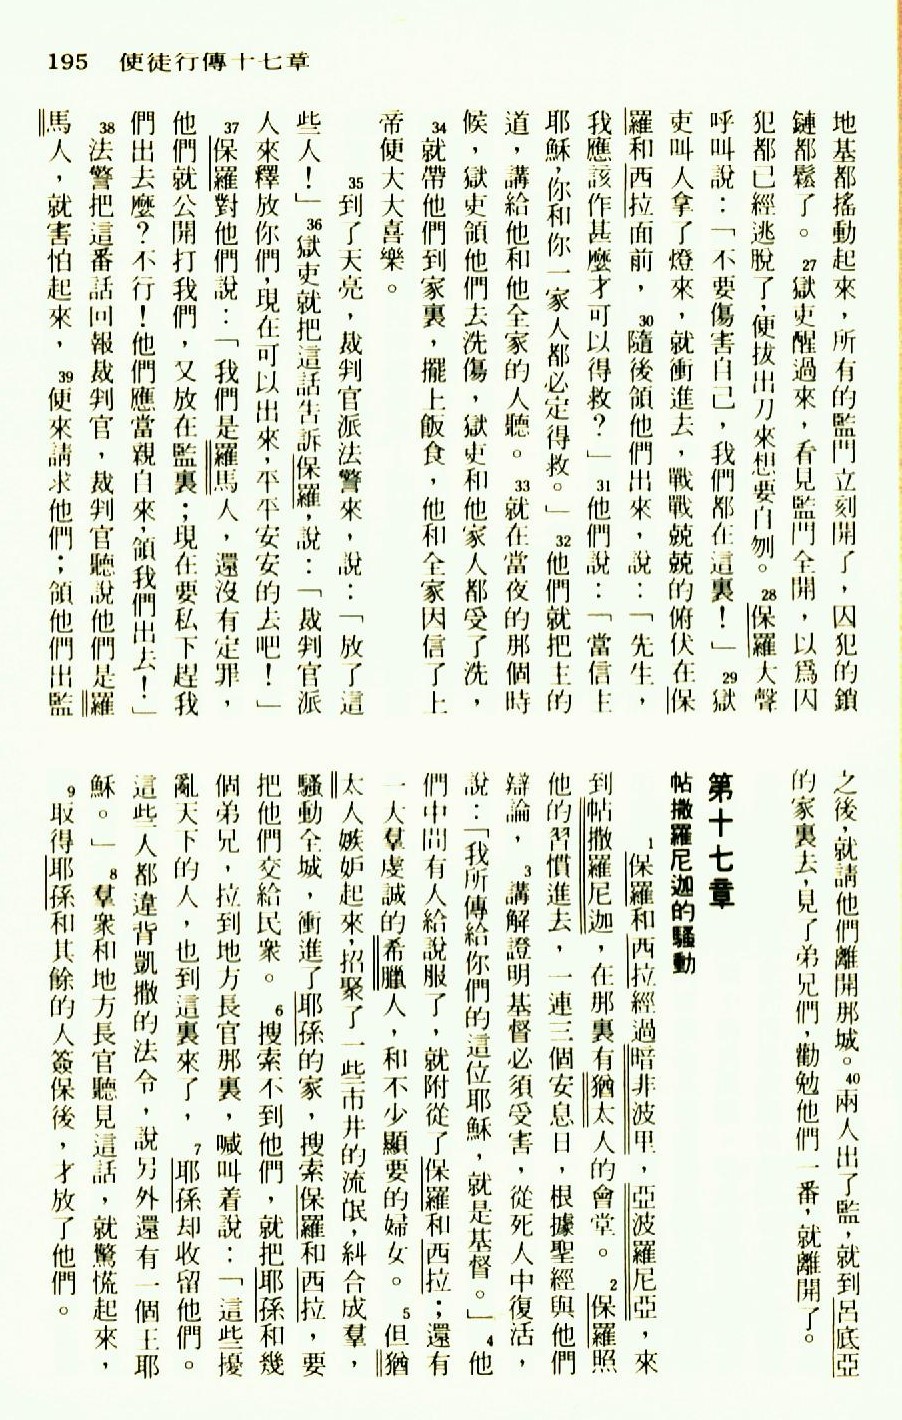 195 使徒行傳十七章
地基都搖動起來，所有的監門立刻開了，囚犯的鎖
鏈都鬆了。27獄吏醒過來，看見監門全開，以爲囚
犯都已經逃脫了，便拔出刀來想要自刎。28保羅大聲
呼叫說：「不要傷害自己，我們都在這裏！」29獄
吏叫人拿了燈來，就衝進去，戰戰兢兢的俯伏在保
羅和西拉面前，30隨後領他們出來，說：「先生，
我應該作甚麼才可以得救？」31他們說：「當信主
耶穌，你和你一家人都必定得救。」32他們就把主的
道，講給他和他全家的人聽。33就在當夜的那個時
候，獄吏領他們去洗傷，獄吏和他家人都受了洗，
34就帶他們到家裏，擺上飯食，他和全家因信了上
帝便大大喜樂。
35到了天亮，裁判官派法警來，說：「放了這
些人！」36獄吏就把這話告訴保羅，說：「裁判官派
人來釋放你們，現在可以出來，平平安安的去吧！」
37保羅對他們說：「我們是羅馬人，還沒有定罪，
他們就公開打我們，又放在監裏；現在要私下趕我
們出去麼？不行！他們應當親自來，領我們出去！」
38法警把這番話回報裁判官，裁判官聽說他們是羅
馬人，就害怕起來，39便來請求他們；領他們出監
之後，就請他們離開那城。40兩人出了監，就到呂底亞
的家裏去，見了弟兄們，勸勉他們一番，就離開了。
第十七章
帖撒羅尼迦的騷動
1保羅和西拉經過暗非波里，亞波羅尼亞，來
到帖撒羅尼迦，在那裏有猶太人的會堂。2保羅照
他的習慣進去，一連三個安息日，根據聖經與他們
辯論，3講解證明基督必須受害，從死人中復活，
說：「我所傳給你們的這位耶穌，就是基督。」4他
們中間有人給說服了，就附從了保羅和西拉；還有
一大羣虔誠的希臘人，和不少顯要的婦女。5但猶
太人嫉妒起來，招聚了一些市井的流氓，糾合成羣，
騷動全城，衝進了耶孫的家，搜索保羅和西拉，要
把他們交給民衆。6搜索不到他們，就把耶孫和幾
個弟兄，拉到地方長官那裏，喊叫着說：「這些擾
亂天下的人，也到這裏來了，7耶孫却收留他們。
這些人都違背凱撒的法令，說另外還有一個王耶
穌。」8羣衆和地方長官聽見這話，就驚慌起來，
9取得耶孫和其餘的人簽保後，才放了他們。